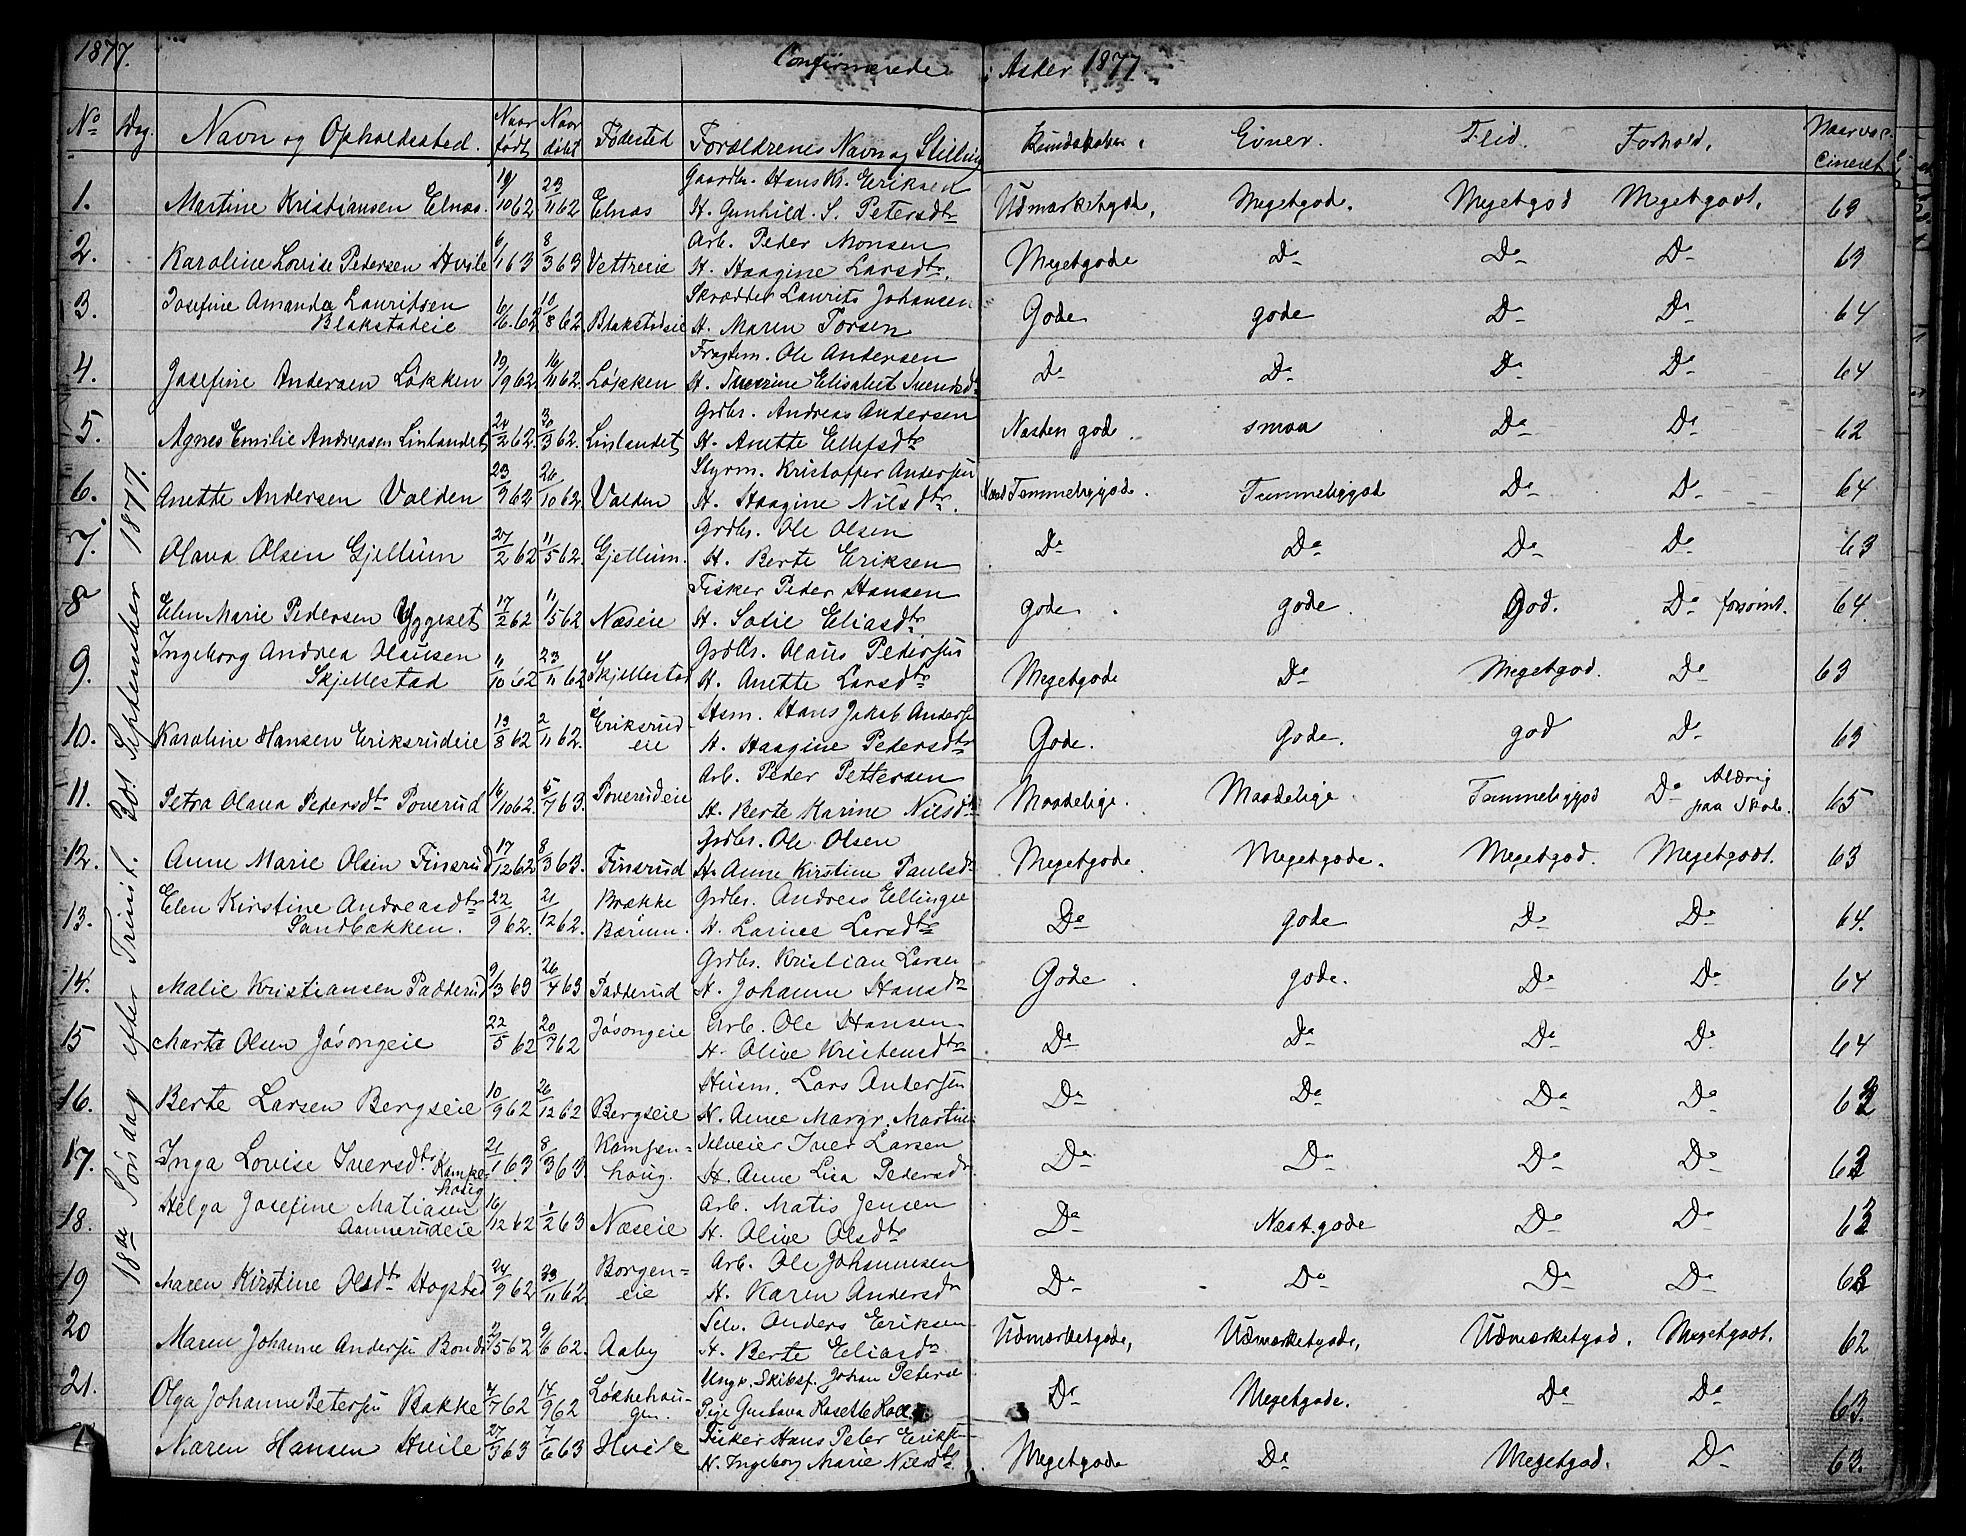 1877. Confirmerede i Asker 1877.
No Dag. Navn og Opholdssted. Naar født Naar døbt Fødested Forældrenes Navn og Stilling Kundskaber. Evner. Flid. Forhold. Naar vac-cineret
18de Søndag efter Trinit. 30. September 1877.
Gaardbr. Hans Kr. Eriksen
1. Martine Kristiansen Elnes. 19/10 62 23/11 62 Elnes H. Gunhild S. Petersdtr Udmærketgode. Megetgode. Megetgod Megetgodt. 63
Arb. Peder Monsen
2. Karoline Lovise Pedersen Hvile 6/1 63 8/3 63 Vettreeie H. Haagine Larsdtr. Megetgode Do Do Do 63
3. Josefine Amanda Lauritsen Skrædder Laurits Johansen
Blakstadeie 6/6 62 10/8 62 Blakstadeie H. Maren Torsen Gode gode Do Do 64
Fragtem. Ole Andersen
4. Josefine Andersen Løkken 19/9 62 16/11 62 Løkken H. Elisabet Do Do Do Do 64
Grdbr. Andreas Andersen
5. Agnes Emilie Andreasen Linlandet 24/2 62. 30/3 62. Linlandet H. Anette Ellefsdtr Næsten god. smaa Do Do 62
Styrm. Kristoffer Andersen
6. Anette Andersen Valden 23/9 62 26/10 62 Valden H. Haagine Nilsdtr. Næst Temmeliggode. Temmeliggod Do Do 64
Grdbr. Ole Olsen
7. Olava Olsen Gjellum 27/2 62 11/5 62. Gjellum. H. Berte Eriksen Do Do Do Do 63
Fisker Peder Hansen
8 Elen Marie Pedersen Yggeset 17/2 62 11/5 62 Næseie H. Sofie Eliasdtr gode. gode. God. Do forsømt. 64.
9. Ingeborg Andrea Olausen Grdbr. Olaus Pedersen
Skjellestad 11/10 62 23/11 62 Skjellestad H. Anette Larsdtr Megetgode Do Megetgod. Do 63
Hsm. Hans Jakob Andersen
10. Karoline Hansen Eriksrudeie 13/8 62 2/11 62. Eriksrud eie H. Haagine Pedersdtr Gode. Gode. god Do 63
Arb. Peder Pettersen
11. Petra Olava Pedersdtr Poverud 16/10 62. 5/7 63. Poverudeie H. Berte Karine Nilsdtr Maadelige. Maadelige Temmeliggod Do Aldrig paa Skole. 65
Grdbr. Ole Olsen
12. Anne Marie Olsen Finsrud 17/12 62 8/3 63. Finsrud H. Anne Kirstine Paulsdtr Megetgode Megetgode. Megetgod. Megetgodt. 63
13. Elen Kirstine Andreasdtr Brække Grdbr. Andreas Ellingsen
Sandbakken. 22/9 62. 21/12 62. Bærum. H. Larine Larsdtr Do gode Do Do 64.
Grdbr. Kristian Larsen
14. Malie Kristiansen Padderud 9/3 63 26/4 63 Padderud H. Johanne Hansdtr Gode. gode. Do Do 64
Arb. Ole Hansen
15 Marta Olsen Jøsongeie 22/5 62 20/7 62 Jøsongeie H. Olive Kristensdtr Do Do Do Do 64
Husm. Lars Andersen
16. Berte Larsen Bergseie 10/9 62 26/12 62 Bergseie H. Anne Margr. Martine Do Do Do Do 63
17. Inga Lovise Iversdtr Kampe-houg 21/1 63. 8/3 63. Kampen-houg. Selveier Iver Larsen
H. Anne Lisa Pedersdtr Do Do Do Do 63
18. Helga Josefine Matiasen Arb. Matis Jensen
Aannerudeie 16/12 62 1/2 63 Næseie H. Olive Olsdtr Do Næst.gode Do Do 63
Arb. Ole Johannesen
19 Maren Kirstine Olsdtr Hogstad 24/9 62 23/11 62. Borgen-eie H. Karen Andersdtr Do Do Do Do 63
Selv. Anders Eriksen
20 Maren Johanne Andersen Bondi 2/5 62 9/6 62. Aaby H. Berte Eliasdtr Udmærketgode, Udmærketgode, Udmærketgod. Megetgodt. 62
Ungk. Skibsf. Johan Petersen
21. Olga Johanne Petersen Bakke 4/7 62 14/9 62 Løkkehau-gen. Pige Gustava Do Megetgode. Do Do 63.
Fisker Hans Peter Eriksen
Maren Hansen Hvile 27/3 63 7/6 63 Hvile H. Ingeborg Marie Nilsdtr. Megetgode Do Megetgod. Do 63.